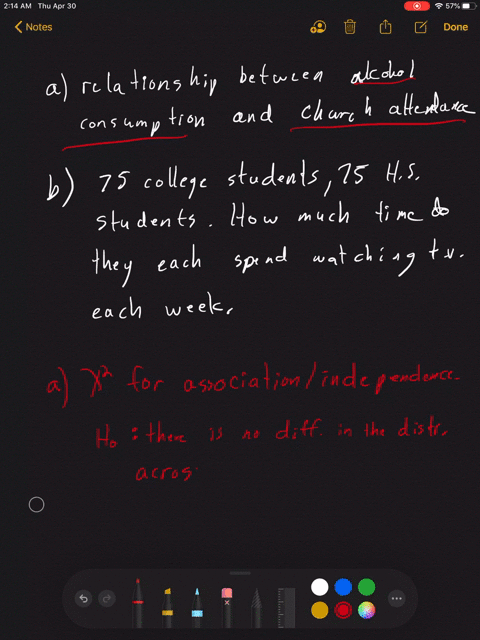 2:14 AM Thu Apr 30
57%
Notes
Done
a) relationship between alcohol
consumption and church attendance
b) 75 college students, 75 H.S.
students. How much time do
they each spend watching t.v.
each week.
a) χ² for association/independence.
H₀ : there is no diff. in the distr.
acros